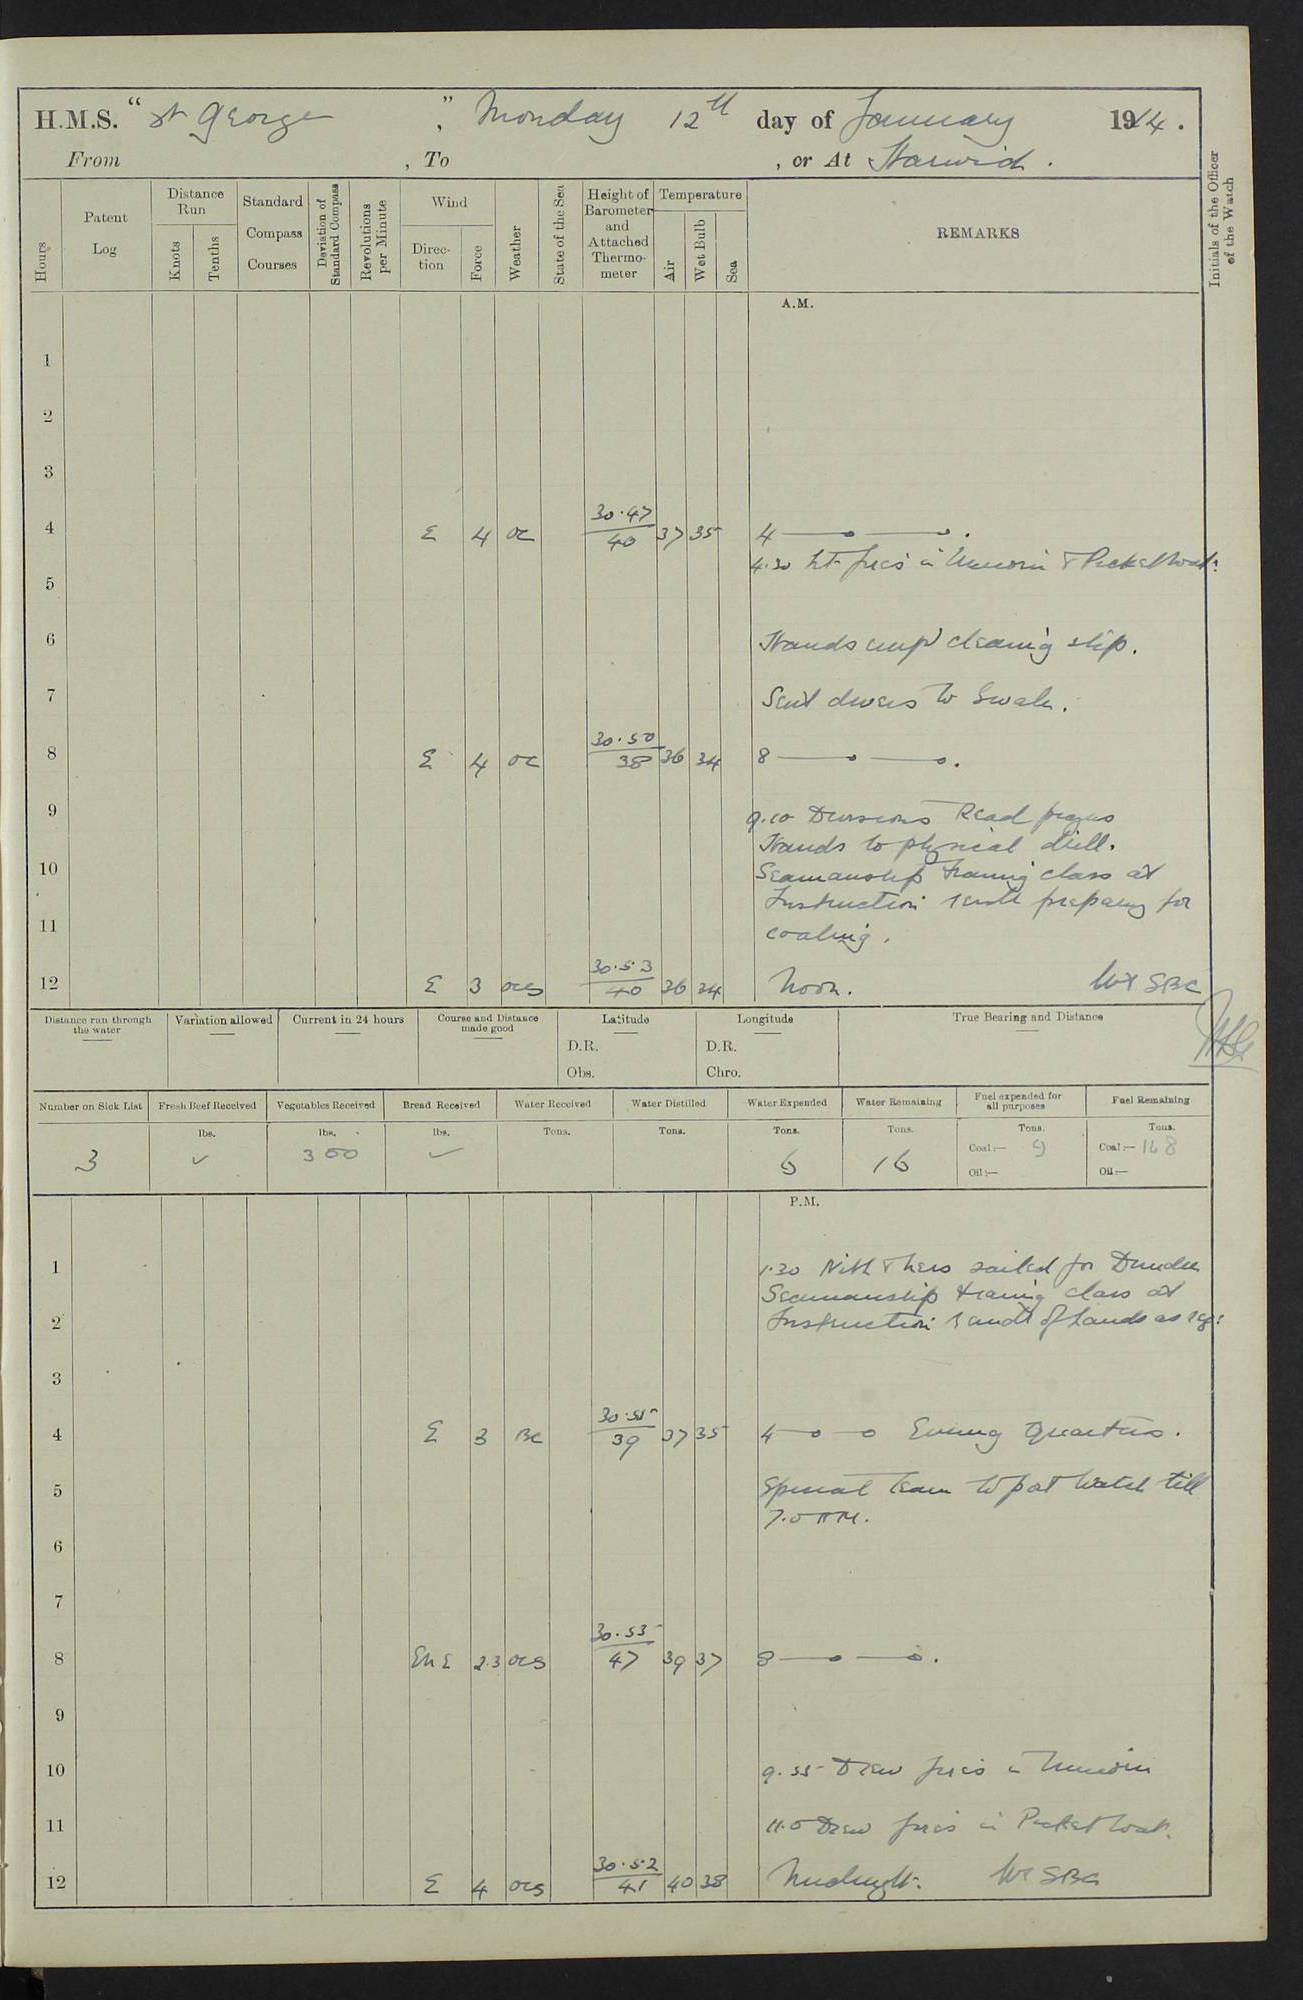 H.M.S. " St George ", Monday 12th day of January 1914.
From , To , or At Harwich.
Hours
Patent Log
Distance Run
Knots
Tenths
Standard Compass Courses
Deviation of Standard Compass
Revolutions per Minute
Wind
Direction
Force
Weather
State of the Sea
Height of Barometer and Attached Thermometer
Temperature
Air
Wet Bulb
Sea
REMARKS
Initials of the Officer of the Watch
A.M.
1
2
3
4 E 4 oc 30.47 40 37 35 4
4.30 Lt. fires in & Picket boat.
5
6 Hands emp'd cleaning ship.
7 Sent divers to Swale.
8 E 4 oc 30.50 38 36 34 8
9 9.10 Divisions Read prayers
Hands to physical drill.
10 Seamanship training class at
Instruction preparing for
11 coaling.
12 E 3 ocg 30.53 40 36 34 Noon.
Distance run through the water
Variation allowed
Current in 24 hours
Course and Distance made good
Latitude
D.R.
Obs.
Longitude
D.R.
Chro.
True Bearing and Distance
Number on Sick List
Fresh Beef Received
Vegetables Received
Bread Received
Water Received
Water Distilled
Water Expended
Water Remaining
Fuel expended for all purposes
Fuel Remaining
lbs. lbs. lbs. Tons. Tons. Tons. Tons. Tons. Tons.
3 ✓ 300 ✓ 6 16 Coal:— 9 Coal:— 168
Oil:— Oil:—
P.M.
1 1.30 Nith & sailed for Dundee
Seamanship training class at
2 Instruction of hands as req:
3
4 E 3 Bc 30.55 39 37 35 4 Evening Quarters.
5 Special team W/T at Watch till
7.0 PM.
6
7
8 ENE 2.3 ocg 30.53 47 39 37 8
9
10 9.55 Drew fires in
11 11.0 Drew fires in Picket boat.
12 E 4 ocg 30.52 41 40 38 Midnight.